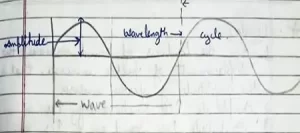 wavelength
cycle
Amplitude
wave